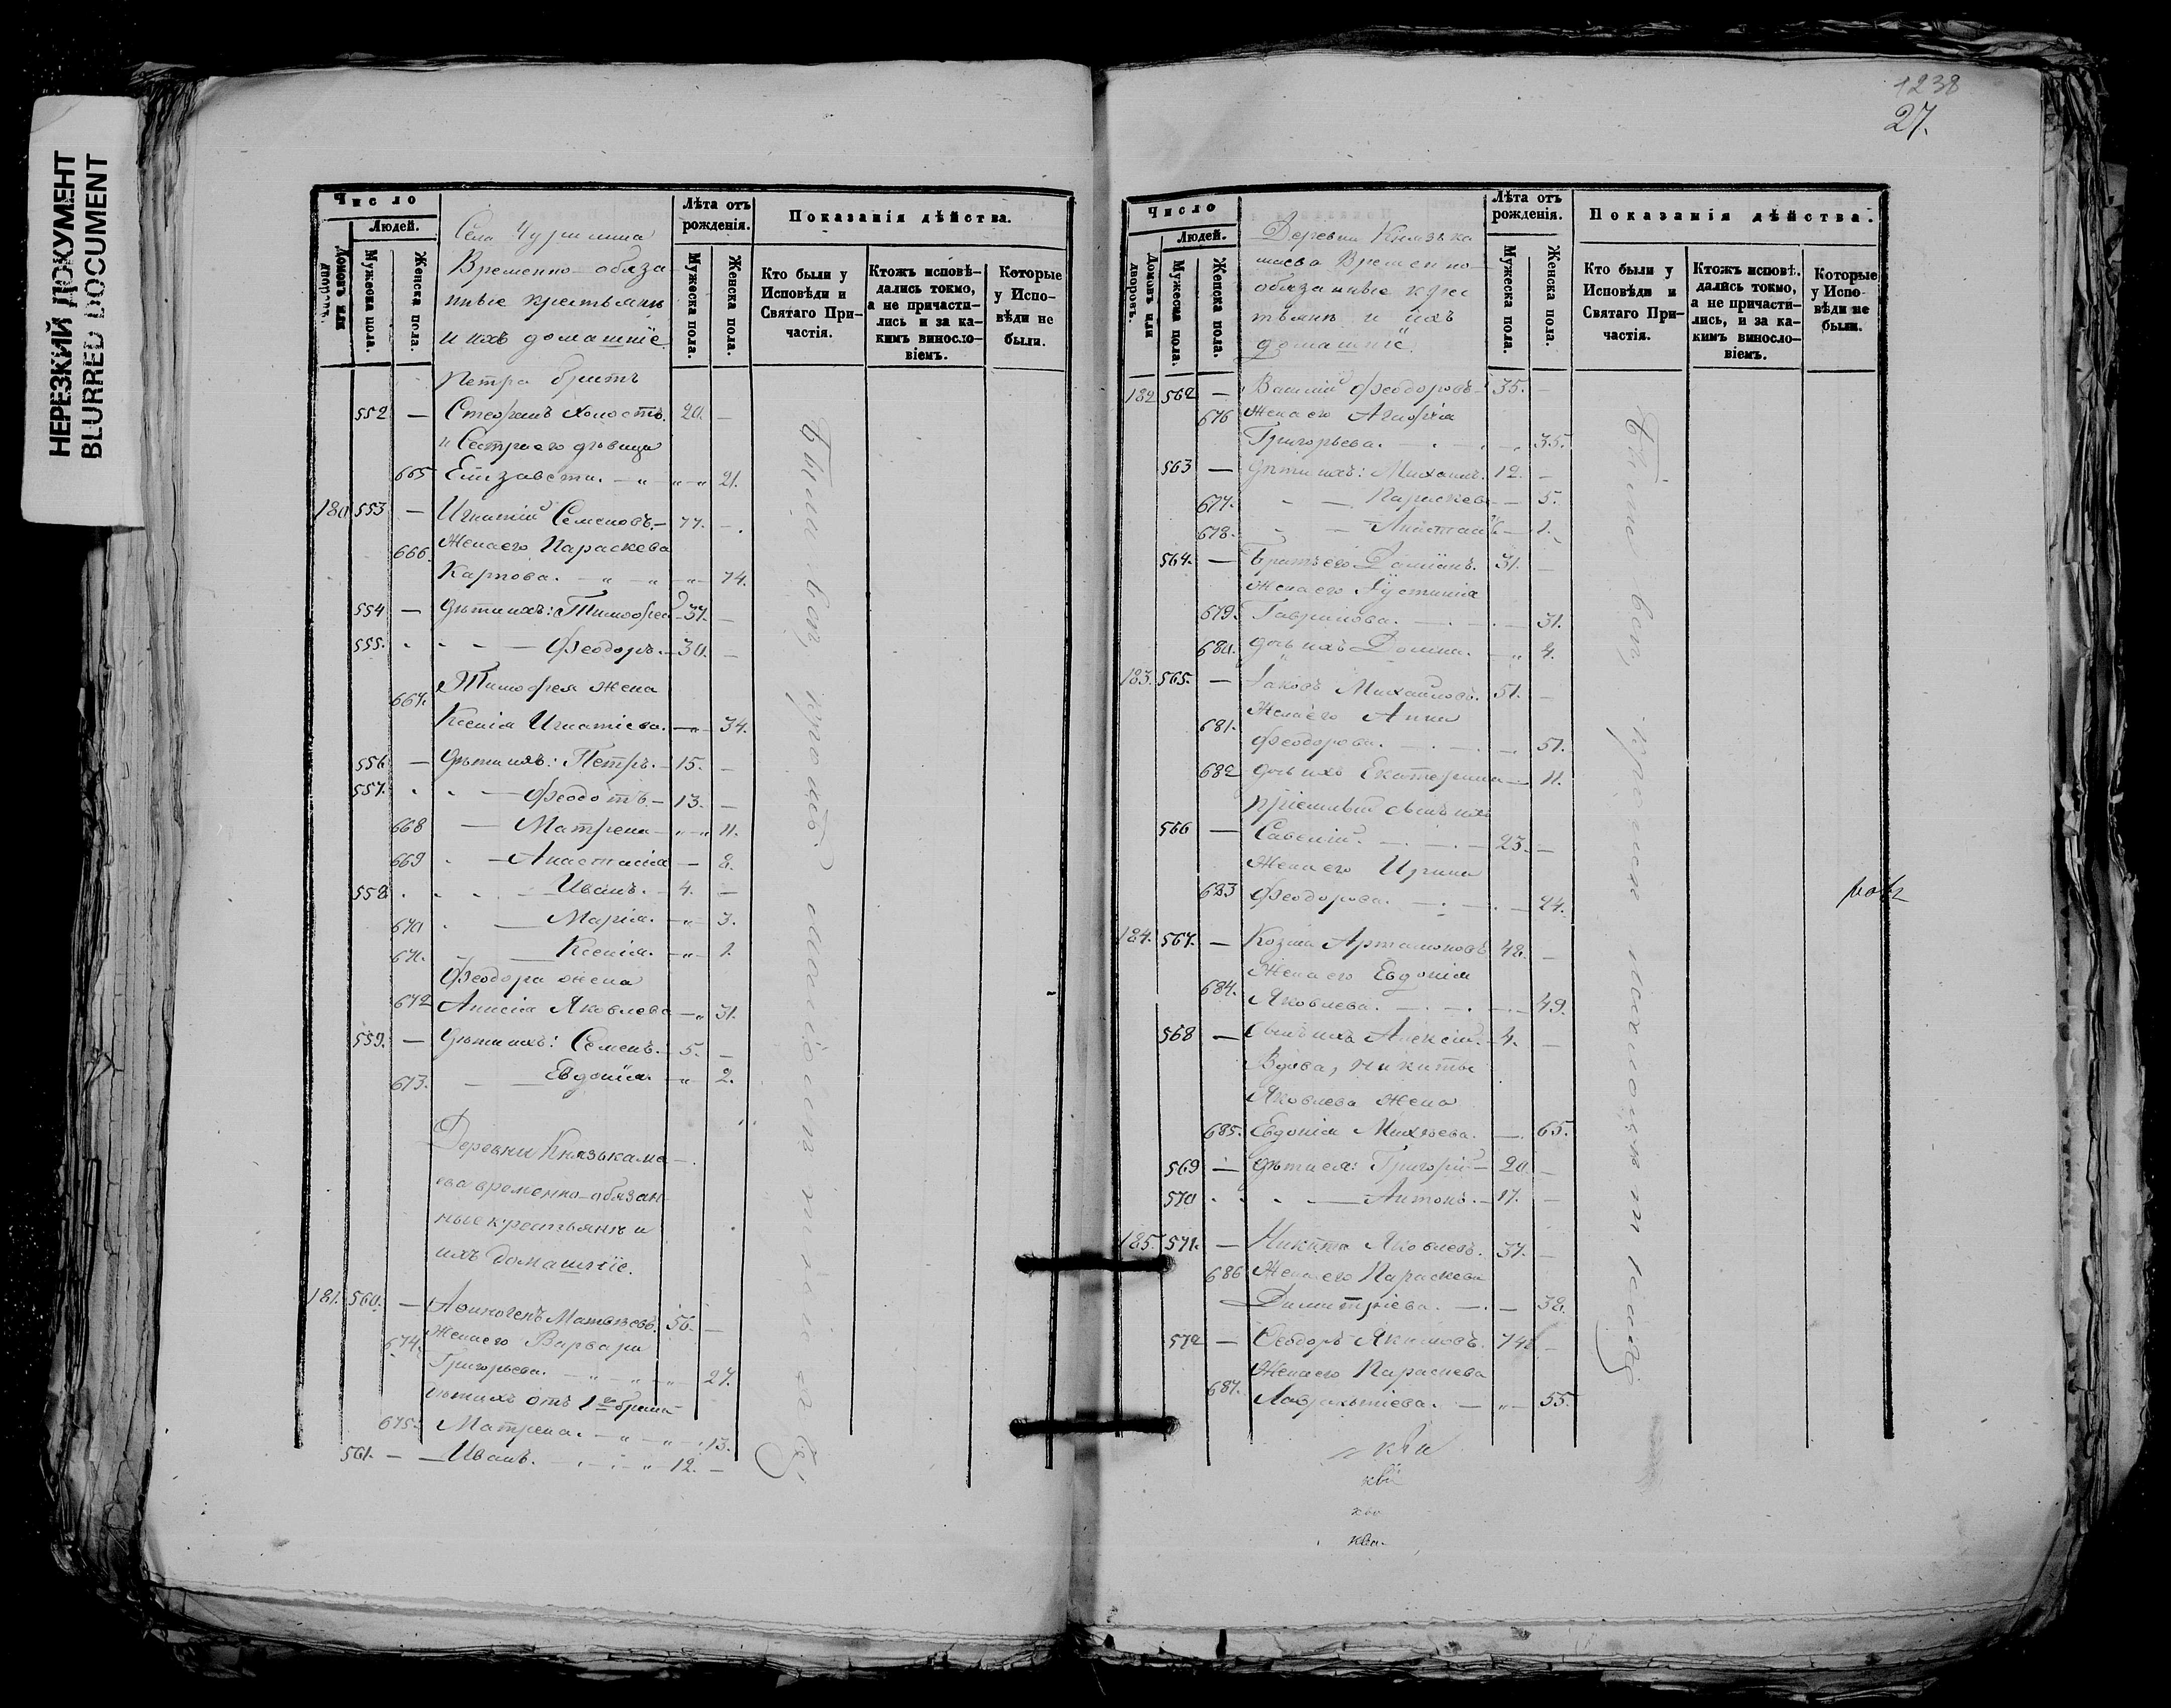 НЕРЕЗКИЙ ДОКУМЕНТ
BLURRED DOCUMENT
Число
Людей.
Домовъ или дворовъ.
Мужеска пола.
Женска пола.
Села
Временно-обяза
нные крестьяне
и ихъ домашнiе.
Лѣта отъ рожденiя.
Мужеска пола.
Женска пола.
Показанiя дѣйства.
Кто были у Исповѣди и Святаго При-частiя.
Ктожъ исповѣ-дались токмо, а не причасти-лись и за ка-кимъ винословiемъ.
Которые у Испо-вѣди не были.
Петра братъ
552 — Стефанъ холостъ. 20. —
и Сестра его дѣвица
665 Елизавета. — „ — „ — „ 21.
180 553 — Игнатiй Семеновъ. — 77. —
666. Жена его Параскева
Карпова. — „ — „ — „ — 74.
554 — Дѣти ихъ: Тимофей — 37. —
555. — Феодоръ. — 30. —
667. Тимофея жена
Ксенiя Игнатiева. — „ — 34.
556 — Дѣти ихъ: Петръ. — 15. —
557. — Феодотъ. — 13. —
668 — Матрена — „ — „ 11.
669 — Анастасiя — 8.
558 — Иванъ. — 4. —
670 — Марiя. — „ — 3.
671. — Ксенiя. — „ — 1.
Феодора жена
672 Анисiя Яковлева — „ 31.
559. — Дѣти ихъ: Семенъ. — 5. —
673. — Евдокiя. — „ — 2.
Деревни Князькама
ева временно-обязан
ные крестьяне и
ихъ домашнiе.
181. 560. — Аѳиногенъ Матвѣевъ. 56. —
674. Жена его Варвара
Григорьева. — „ — „ — „ 27.
дѣти ихъ отъ 1го брака
675. Матрена. — „ — „ — 13.
561. — — Иванъ. — 12. —
Были вси, кромѣ малолѣтнихъ
1238
27.
Число
Людей.
Домовъ или дворовъ.
Мужеска пола.
Женска пола.
Деревни Князька
маева Временно-
обязанные крес
тьяне и ихъ
домашнiе.
Лѣта отъ рожденiя.
Мужеска пола.
Женска пола.
Показанiя дѣйства.
Кто были у Исповѣди и Святаго При-частiя.
Ктожъ исповѣ-дались токмо, а не причасти-лись, и за ка-кимъ винословiемъ.
Которые у Испо-вѣди не были.
182 562 — Василiй Феодоровъ — 35. —
676 Жена его Агафiя
Григорьева. — 35.
563 — Дѣти ихъ: Михаилъ. 12. —
677. — Параскева — 5.
678. — — 1.
564. — Братъ его Домiанъ. 31. —
Жена его Iустинiя
679. Гаврилова. — 31.
680. дочь ихъ Домна. — „ 4.
183. 565. — Iаковъ Михайловъ. 51. —
681. Жена его Анна
Феодорова. — 51.
682 дочь ихъ Екатерина — 11.
Прiемный сынъ ихъ
566 — Савелiй. — 23. —
Жена его Ирина
683 Феодорова. — 24.
184. 567. — Козма Артамоновъ 48. —
684. Жена его Евдокiя
Яковлева. — 49.
568 — Сынъ ихъ Алексiй. 4. —
Вдова, Никиты
Яковлева жена
685. Евдокiя Михѣева. — 65.
569 — Дѣти ея: Григорiй — 20. —
570 — Антонъ. — 17. —
185. 571. — Никита Яковлевъ. 37. —
686 Жена его Параскева
Димитрiева. — 38.
572 — Ѳеодоръ Якимовъ. 74 —
687. Жена его Параскева
— „ — 55.
Были вси, кромѣ